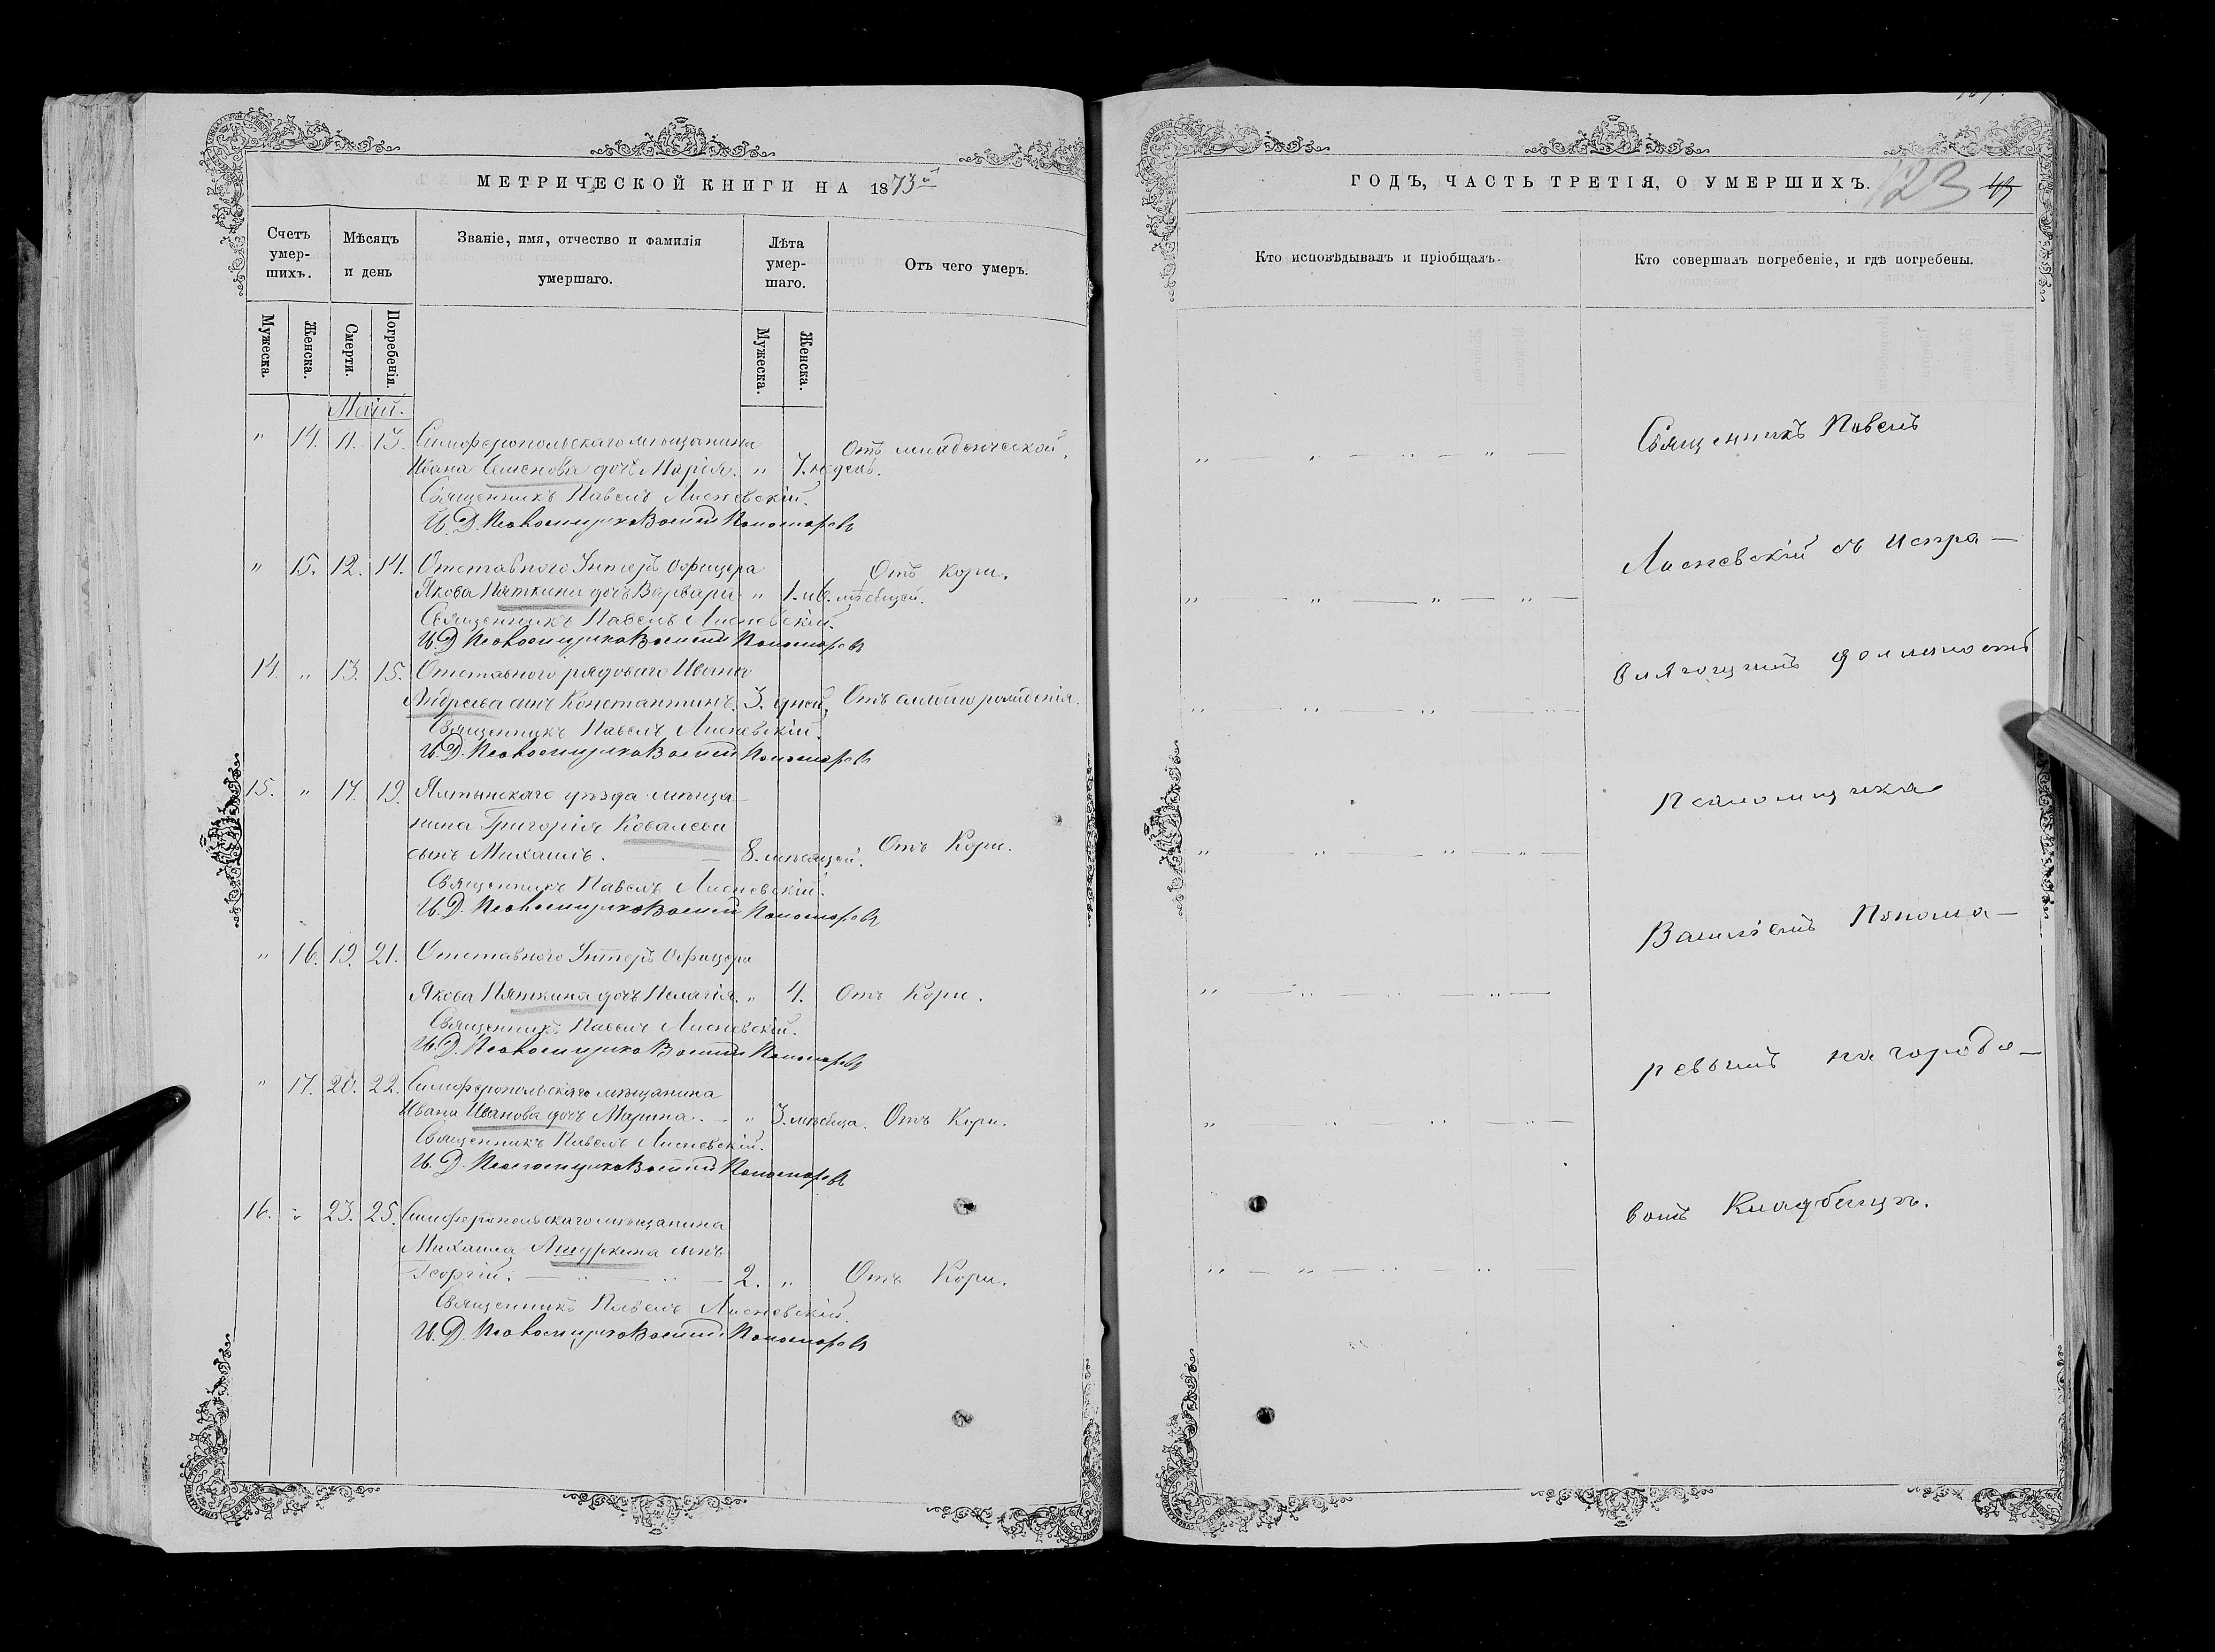 МЕТРИЧЕСКОЙ КНИГИ НА 1873й
Счетъ умер-шихъ.
Мѣсяцъ и день
Званіе, имя, отчество и фамилія умершаго.
Лѣта умер-шаго.
Отъ чего умеръ.
Мужеска.
Женска.
Смерти.
Погребенія.
Мужеска.
Женска.
Май.
" 14. 11. 13. Симферопольскаго мѣщанина
Ивана Семенова дочь Марія. " 7. недель. Отъ младенческой.
Священникъ Павелъ Лисневскій.
И. Д. Псаломщика Василій Пономаревъ
" 15. 12. 14. Отставного Унтеръ Офицера
Якова Пяткина дочь Варвара " 1. и 6. мѣсяцей. Отъ Кори.
Священникъ Павелъ Лисневскій.
И. Д. Псаломщика Василій Пономаревъ
14. " 13. 15. Отставного рядоваго Ивана
Андреева сынъ Константинъ. 3. дней, Отъ слабаго рожденія.
Священникъ Павелъ Лисневскій.
И. Д. Псаломщика Василій Пономаревъ
15. " 17. 19. Ялтинскаго уѣзда мѣща-
нина Григорія Ковалева
сынъ Михаилъ. — 8. мѣсяцей. Отъ Кори.
Священникъ Павелъ Лисневскій.
И. Д. Псаломщика Василій Пономаревъ
" 16. 19. 21. Отставного Унтеръ Офицера
Якова Пяткина дочь Пелагія. " 4. Отъ Кори.
Священникъ Павелъ Лисневскій.
И. Д. Псаломщика Василій Пономаревъ
" 17. 20. 22. Симферопольскаго мѣщанина
Ивана Иванова дочь Марина. — " 3. мѣсяца. Отъ Кори.
Священникъ Павелъ Лисневскій.
И. Д. Псаломщика Василій Пономаревъ
16. " 23. 25. Симферопольскаго мѣщанина
Михаила сынъ
Георгій. — " — " — 2. " Отъ Кори.
Священникъ Павелъ Лисневскій.
И. Д. Псаломщика Василій Пономаревъ
ГОДЪ, ЧАСТЬ ТРЕТІЯ, О УМЕРШИХЪ.
123
Кто исповѣдывалъ и пріобщалъ.
Кто совершалъ погребеніе, и гдѣ погребены.
Священникъ Павелъ
Лисневскій съ испра-
вляющимъ должность
Псаломщика
Василіемъ Понома-
ревымъ на городо-
вомъ Кладбищѣ.